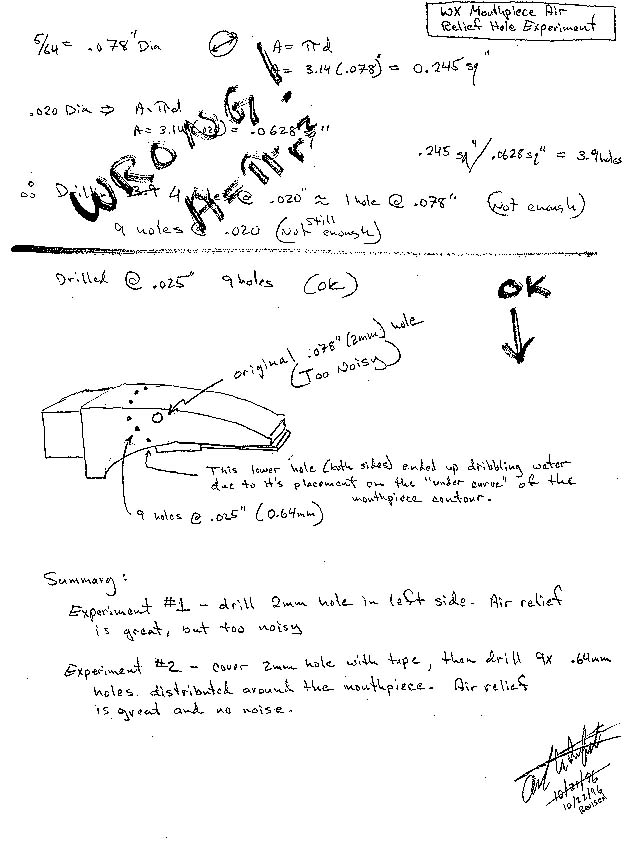 WX Mouthpiece Air
Relief Hole Experiment
5/64 = .078" Dia
A = πd
A = 3.14 (.078) = 0.245 sq"
.020 Dia ⇒ A = πd
A = 3.14 (.020) = .0628 sq"
.245 sq"/.0628 sq" = 3.9 holes
∴ Drilling 3.9 4 holes @ .020" ≈ 1 hole @ .078" (Not enough)
9 holes @ .020 (Still Not enough)
WRONG!
A=πr²
Drilled @ .025" 9 holes (OK)
OK
original .078" (2mm) hole
(Too Noisy)
This lower hole (both sides) ended up dribbling water
due to it's placement on the "under curve" of the
mouthpiece contour.
9 holes @ .025" (0.64mm)
Summary:
Experiment #1 - drill 2mm hole in left side. Air relief
is great, but too noisy
Experiment #2 - cover 2mm hole with tape, then drill 9x .64mm
holes distributed around the mouthpiece. Air relief
is great and no noise.
10/21/96
10/22/96
Revision